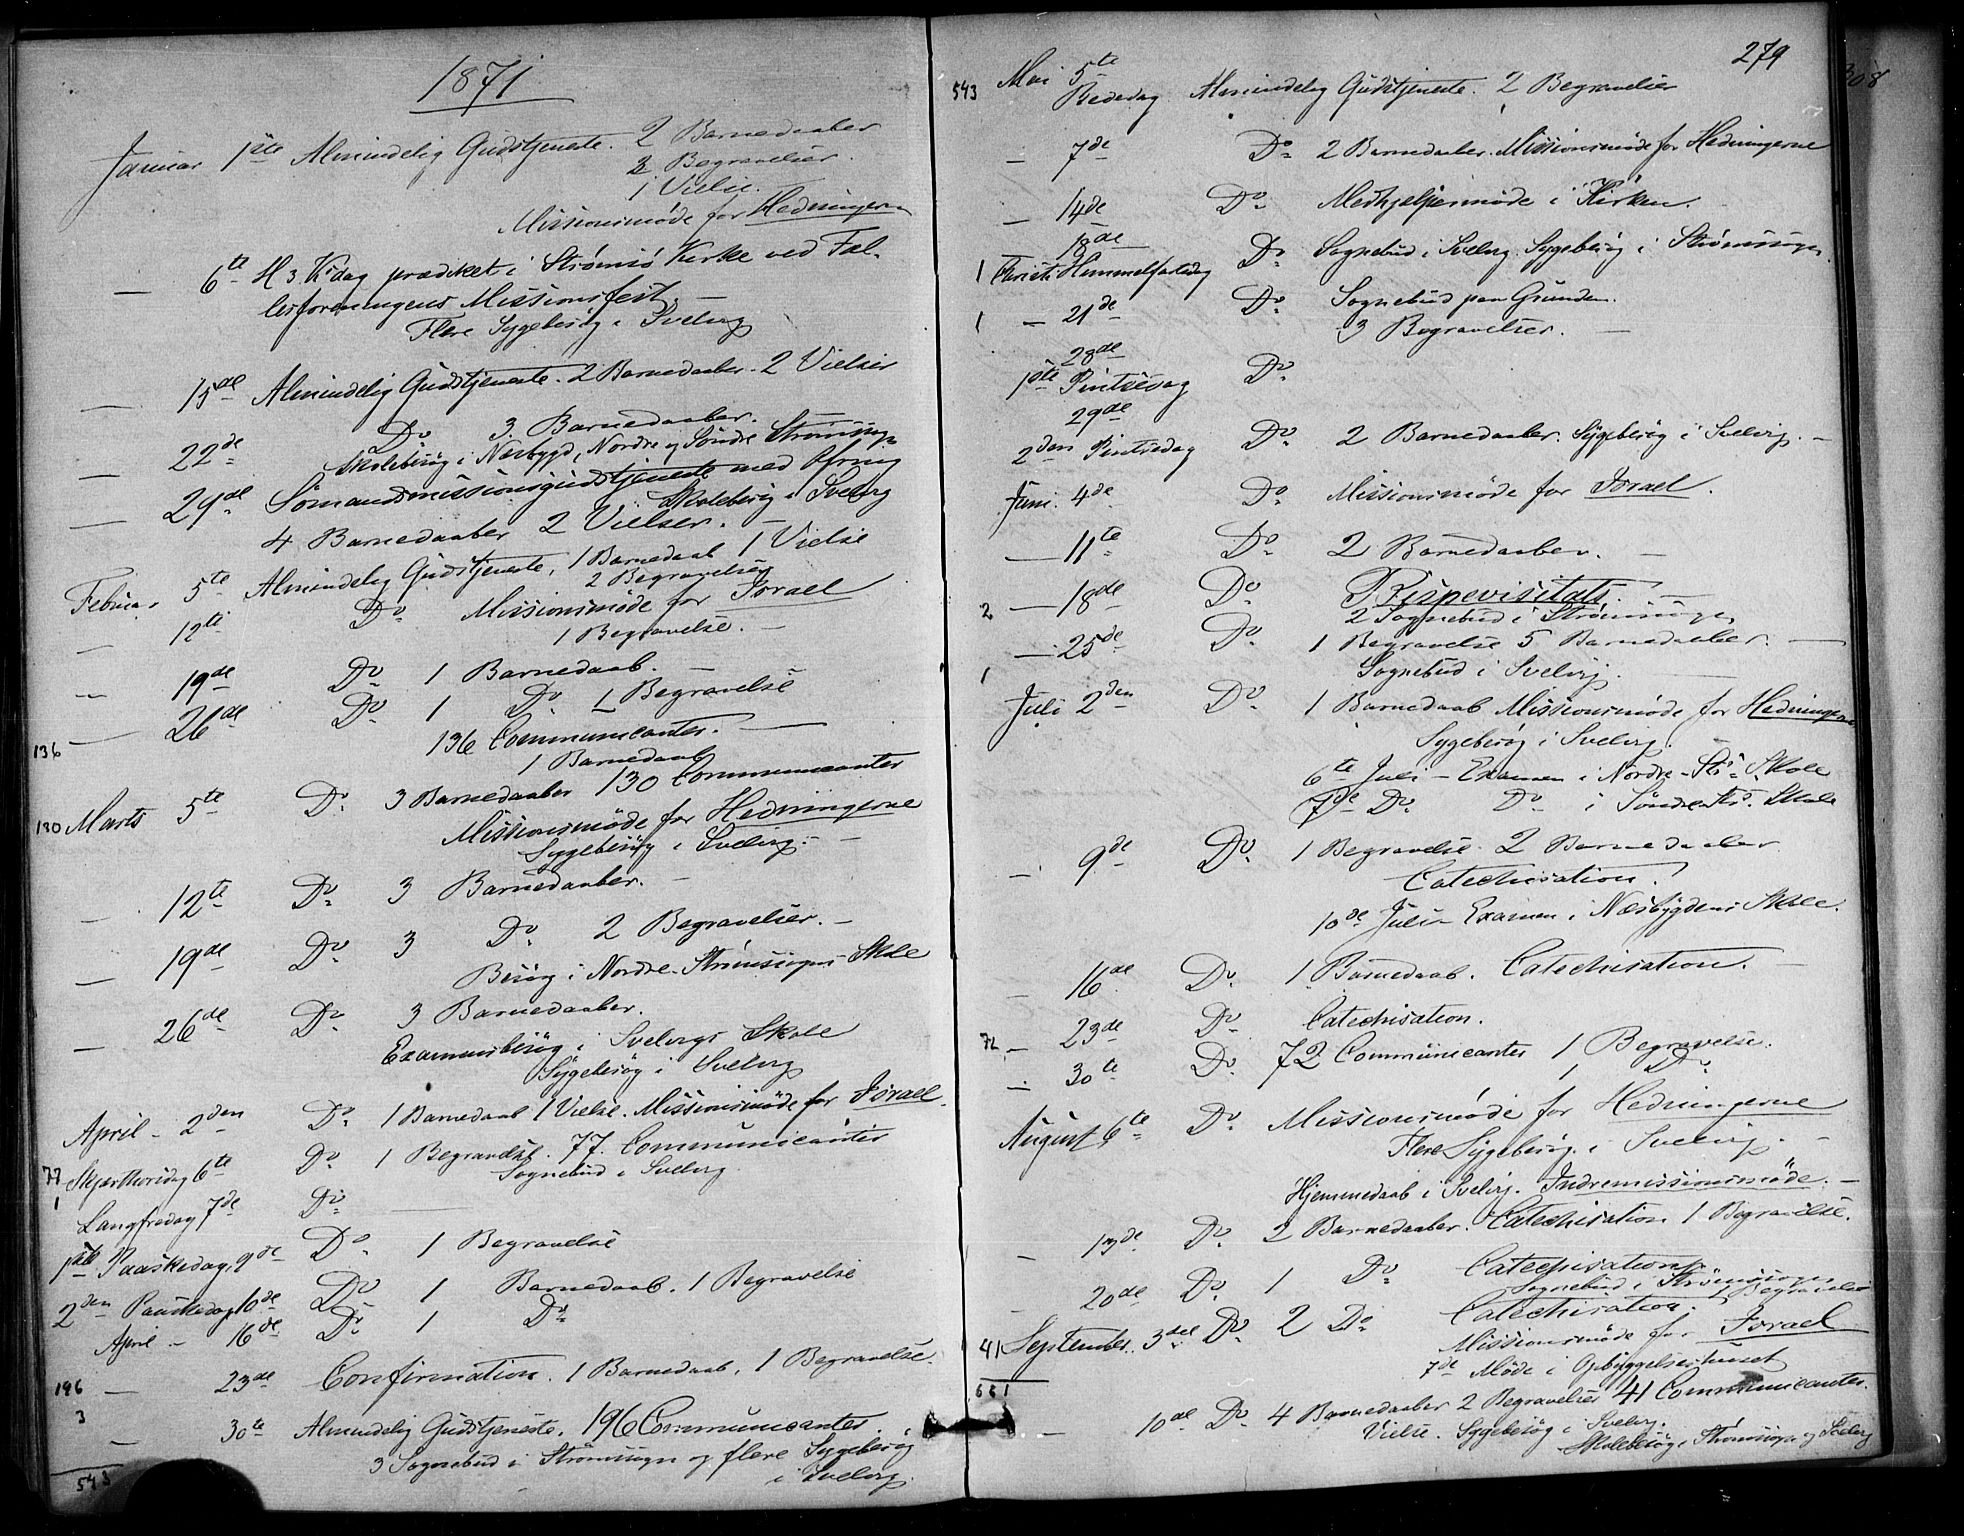 1871
Januar 1ste Almindelig Gudstjeneste. 2 Barnedaaber
2 Begravelser.
1 Vielse.
Missionsmøde for Hedningerne
— 6te H 3 K dag prædiket i Strømsø Kirke ved Fæl-
lesforeningens Missionsfest. —
Flere Sygebesøg i Svelvig
— 15de Almindelig Gudstjeneste. 2 Barnedaaber. 2 Vielser
— 22de Do 3 Barnedaaber.
Skolebesøg i Nesbygd, Nordre og Søndre Strømsogn
— 29de Sømandsmissionsgudstjeneste med Ofring
Skolebesøg i Svelvig
4 Barnedaaber 2 Vielser. —
Februar 5te Almindelig Gudstjeneste, 1 Barnedaab 1 Vielse
2 Begravelser
— 12te Do Missionsmøde for Israel
1 Begravelse. —
— 19de Do 1 Barnedaab. —
136 — 26de Do 1 Do 1 Begravelse
136 Communicanter. —
1 Barnedaab
130 Marts 5te Do 3 Barnedaaber 130 Communicanter
Missionsmøde for Hedningerne
Sygebesøg i Svelvig. —
— 12te Do 3 Barnedaaber. —
— 19de Do 3 Do 2 Begravelser. —
Besøg i Nordre Strømsogns Skole
— 26de Do 3 Barnedaaber.
Examensbesøg i Svelvigs Skole
Sygebesøg i Svelvig
April - 2den Do 1 Barnedaab 1 Vielse. Missionsmøde for Israel.
77 Skjærthorsdag 6te Do 1 Begravelse. 77. Communicanter
1 Sognebud i Svelvig
Langfredag 7de Do
1ste Paaskedag, 9de Do 1 Begravelse
2den Paaskedag 10de Do 1 Barnedaab. 1 Begravelse
April - 16de Do 1 Do
196 — 23de Confirmation. 1 Barnedaab, 1 Begravelse.
3 — 30te Almindelig Gudstjeneste. 196 Communicanter
3 Sognebud i Strømsogn og flere Sygebesøg
i Svelvig.
543
279
308
543 Mai 5te
Bededag Almindelig Gudstjeneste. 2 Begravelser
— 7de Do 2 Barnedaaber. Missionsmøde for Hedningerne
— 14de Do Medhjelpermøde i Kirken.
18de
1 Christi Himmelfartsdag Do Sognebud i Svelvig. Sygebesøg i Strømsogn.
1 — 21de Do Sognebud paa Grunden.
3 Begravelser. —
28de
1ste Pintsedag Do
29de
2den Pintsedag Do 2 Barnedaaber. Sygebesøg i Svelvig. —
Juni. 4de Do Missionsmøde for Israel.
— 11te Do 2 Barnedaaber. —
2 — 18de Do Bispevisitats. —
2 Sognebud i Strømsogn
— 25de Do 1 Begravelse 5 Barnedaaber. —
1 Sognebud i Svelvig. —
Juli 2den Do 1 Barnedaab Missionsmøde for Hedningerne
Sygebesøg i Svelvig.
6te Juli - Examen i Nordre - Strs Skole
7de Do Do i Søndre Strs. Skole
— 9de Do 1 Begravelse. 2 Barnedaaber
Catechisation.
10de Juli - Examen i Næsbygdens Skole.
— 16de Do 1 Barnedaab. Catechisation. —
— 23de Do Catechisation.
72 — 30te Do 72 Communicanter 1 Begravelse.
1 Do
August 6te Do Missionsmøde for Hedningerne
Flere Sygebesøg i Svelvig. —
Hjemmedaab i Svelvig. Indremissionsmøde. —
— 13de Do 2 Barnedaaber. Catechisation 1 Begravelse.
— 20de Do 1 Do Catechisation
Sognebud i Strømsogn
Begravelse
41 September 3die Do 2 Do Catechisation.
Missionsmøde for Israel
7de Møde i Opbyggelseshuset
661
— 10de Do 4 Barnedaaber 2 Begravelser 41 Communicanter.
Vielse. Sygebesøg i Svelvig.
Skolebesøg i Strømsogn og Svelvig